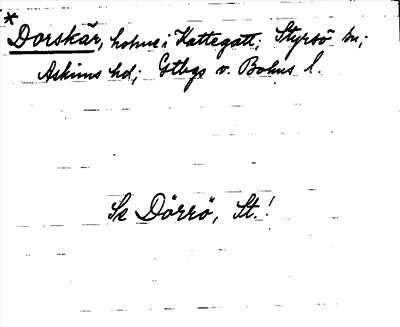 *
Dorskär, holme i Kattegatt; Styrsö sn;
Askims hd; Gtbgs o. Bohus l.
Se Dörrö, St.!